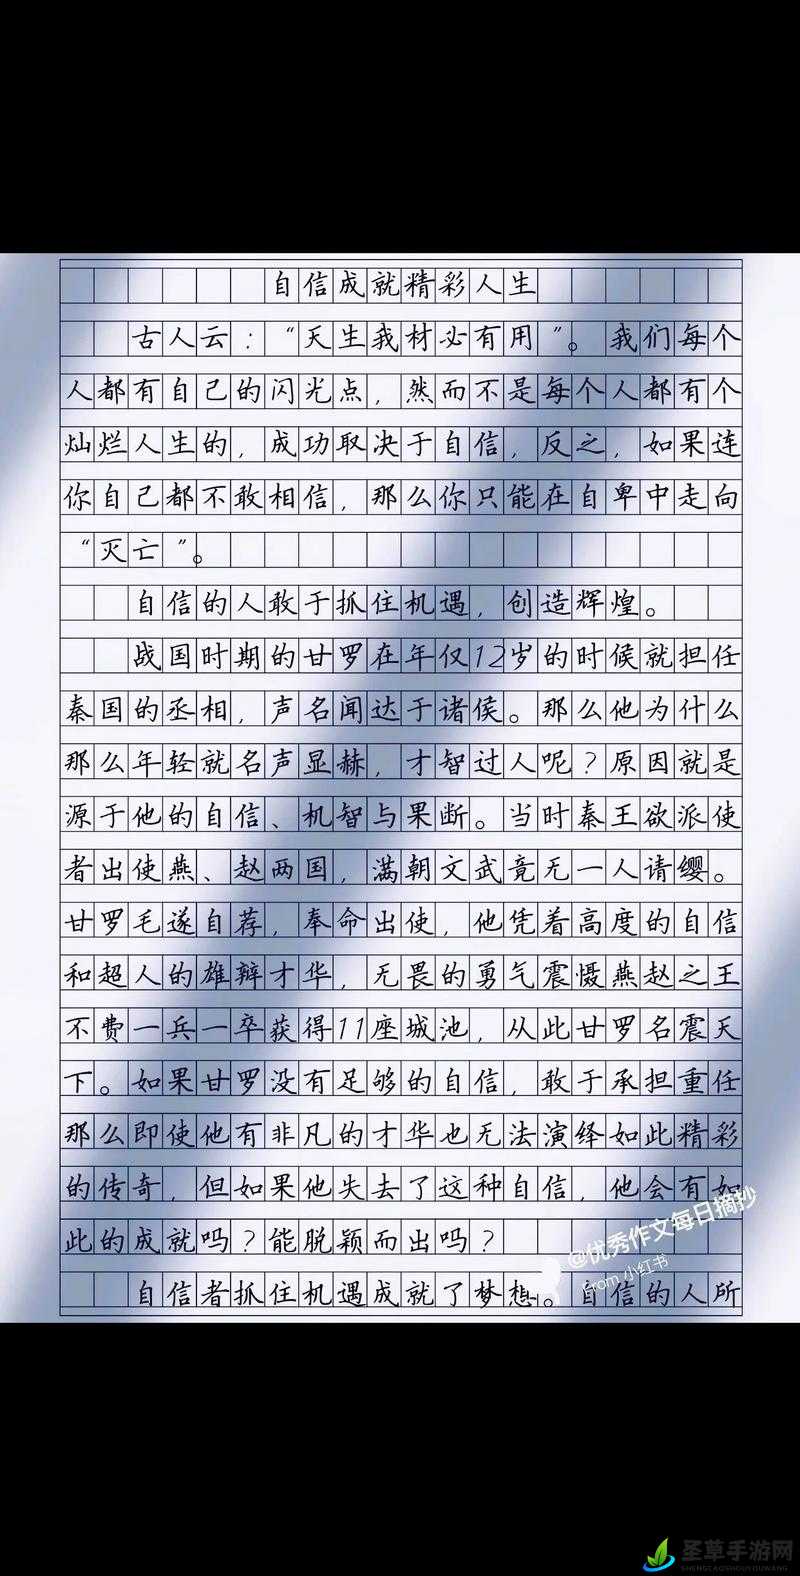 自信成就精彩人生
古人云：“天生我材必有用”。我们每个
人都有自己的闪光点，然而不是每个人都有个
灿烂人生的，成功取决于自信，反之，如果连
你自己都不敢相信，那么你只能在自卑中走向
“灭亡”。
自信的人敢于抓住机遇，创造辉煌。
战国时期的甘罗在年仅12岁的时候就担任
秦国的丞相，声名闻达于诸侯。那么他为什么
那么年轻就名声显赫，才智过人呢？原因就是
源于他的自信、机智与果断。当时秦王欲派使
者出使燕、赵两国，满朝文武竟无一人请缨。
甘罗毛遂自荐，奉命出使，他凭着高度的自信
和超人的雄辩才华，无畏的勇气震慑燕赵之王
不费一兵一卒获得11座城池，从此甘罗名震天
下。如果甘罗没有足够的自信，敢于承担重任
那么即使他有非凡的才华也无法演绎如此精彩
的传奇，但如果他失去了这种自信，他会有如
此的成就吗？能脱颖而出吗？
自信者抓住机遇成就了梦想。自信的人所
@优秀作文每日摘抄
From 小红书
圣草手游网
SHENGCAOSHOUYOUWANG